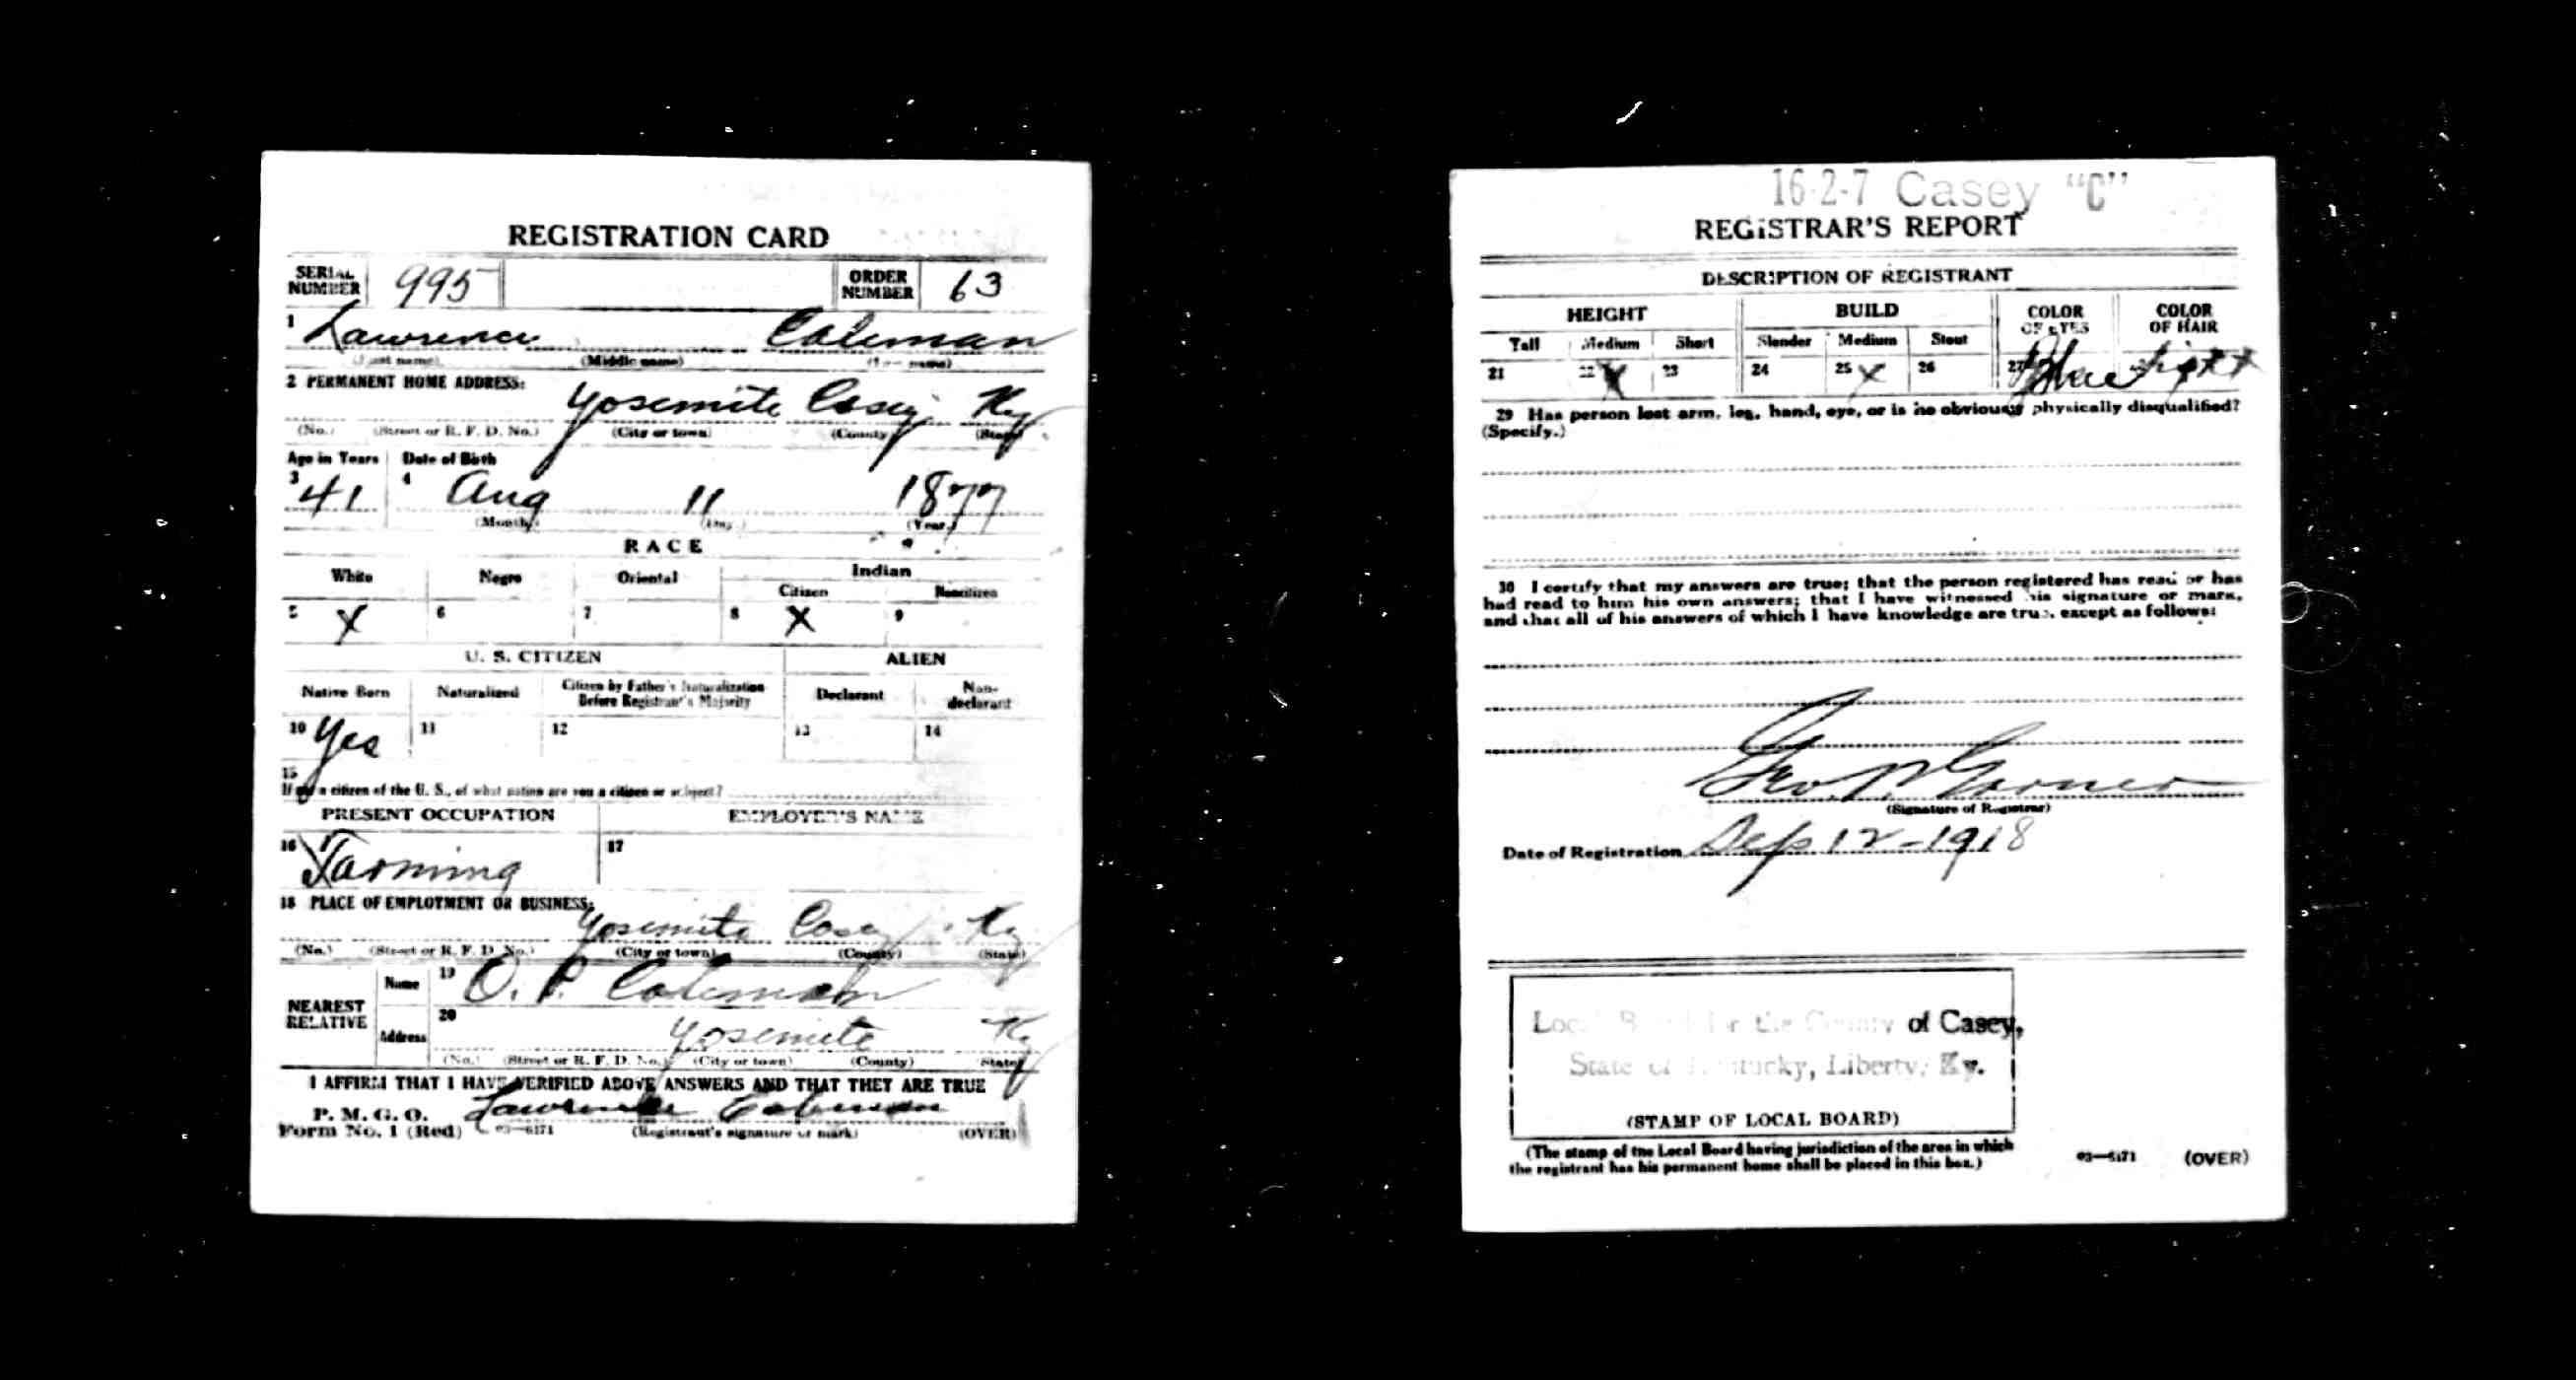 REGISTRATION CARD
SERIAL NUMBER 995 ORDER NUMBER 63
1 Lawrence Coleman
(First name) (Middle name) (Last name)
2 PERMANENT HOME ADDRESS:
Yosemite Casey Ky
(No.) (Street or R. F. D. No.) (City or town) (County) (State)
Age in Years Date of Birth
3 41 4 Aug 11 1877
(Month) (Day.) (Year.)
RACE
White Negro Oriental Indian
Citizen Noncitizen
5 X 6 7 8 X 9
U. S. CITIZEN ALIEN
Native Born Naturalized Citizen by Father's Naturalization Before Registrant's Majority Declarant Non-declarant
10 Yes 11 12 13 14
15
If not a citizen of the U. S., of what nation are you a citizen or subject?
PRESENT OCCUPATION EMPLOYER'S NAME
16 Farming 17
18 PLACE OF EMPLOYMENT OR BUSINESS:
Yosemite Casey Ky
(No.) (Street or R. F. D. No.) (City or town) (County) (State)
NEAREST RELATIVE
Name 19 O. P. Coleman
Address 20 Yosemite Ky
(No.) (Street or R. F. D. No.) (City or town) (County) (State)
I AFFIRM THAT I HAVE VERIFIED ABOVE ANSWERS AND THAT THEY ARE TRUE
P. M. G. O.
Form No. 1 (Red) 03—6171 Lawrence Coleman
(Registrant's signature or mark) (OVER)
16-2-7 Casey "C"
REGISTRAR'S REPORT
DESCRIPTION OF REGISTRANT
HEIGHT BUILD COLOR OF EYES COLOR OF HAIR
Tall Medium Short Slender Medium Stout
21 22 X 23 24 25 X 26 27 Blue Light
29 Has person lost arm, leg, hand, eye, or is he obviously physically disqualified?
(Specify.)
30 I certify that my answers are true; that the person registered has read or has
had read to him his own answers; that I have witnessed his signature or mark,
and that all of his answers of which I have knowledge are true, except as follows:
Geo.
(Signature of Registrar)
Date of Registration Sep 12-1918
Local Board for the County of Casey,
State of Kentucky, Liberty, Ky.
(STAMP OF LOCAL BOARD)
(The stamp of the Local Board having jurisdiction of the area in which
the registrant has his permanent home shall be placed in this box.)
03—6171 (OVER)